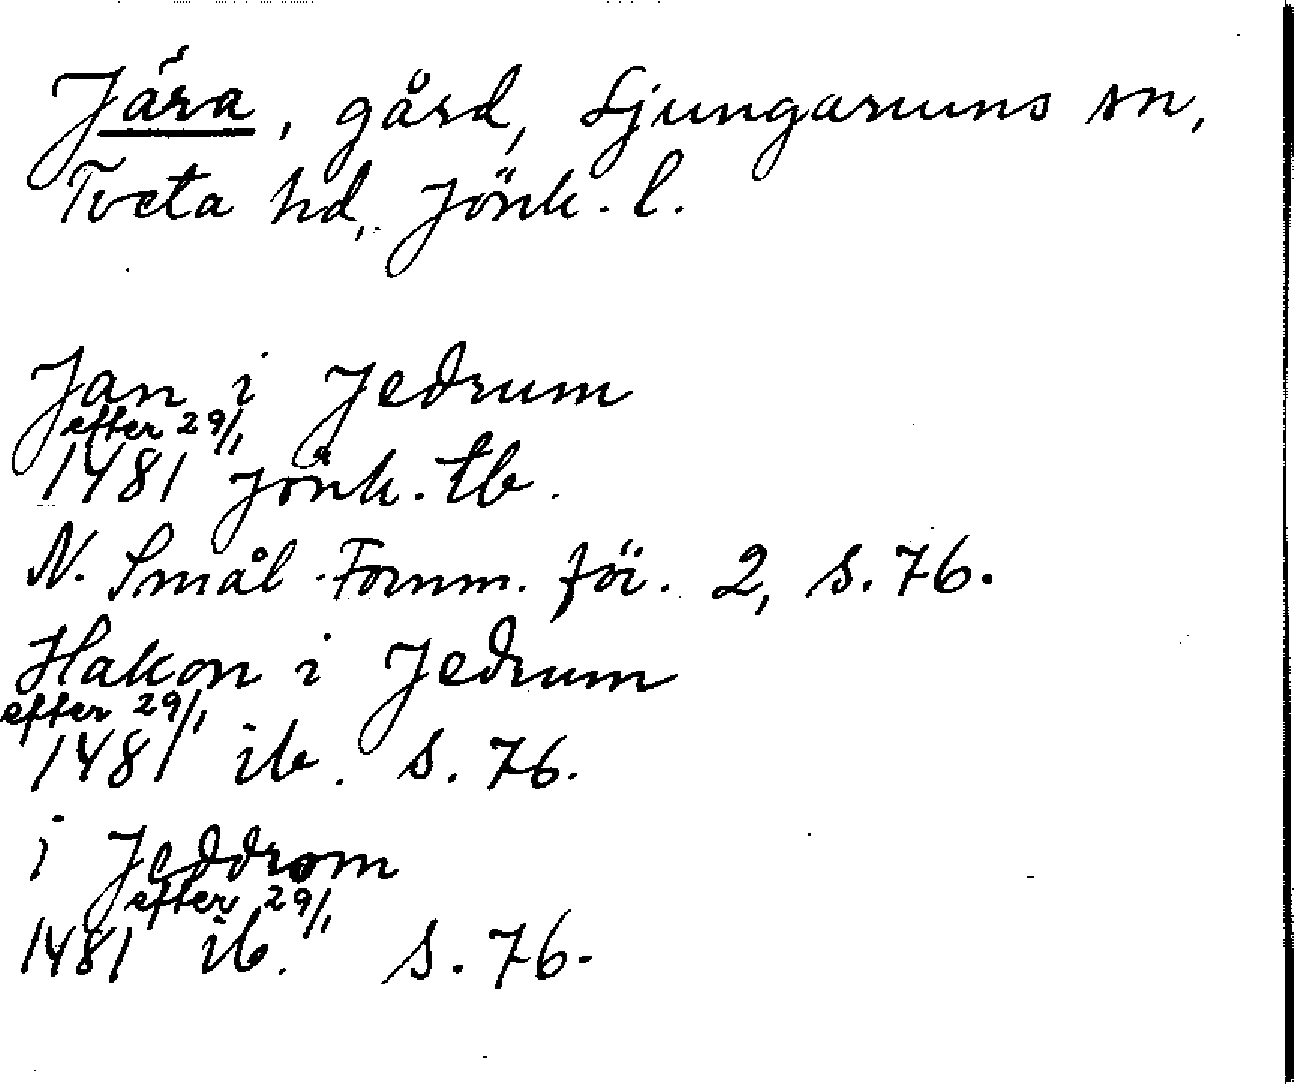 Jära, gård, Ljungarums sn,
Tveta hd, Jönk. l.
Jan i Jedrum
efter 29/1
1481 Jönk. tb.
N. Smål. Fornm. för. 2, s. 76.
Hakon i Jedrum
efter 29/1
1481 ib. s. 76.
i Jeddrom
efter 29/1
1481 ib. s. 76.